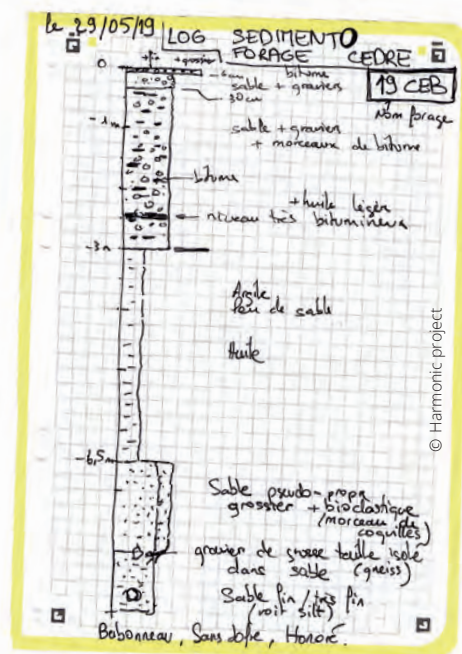 le 29/05/19 LOG SEDIMENTO
FORAGE CEDRE
19 CEB
Nom forage
+fin +grossier
0
6cm bitume
sable + graviers
30cm
-1m
sable + graviers
+ morceaux de bitume
bitume
+ huile léger
niveau très bitumineux
-3m
Argile
Peu de sable
Huile
-6,5m
Sable pseudo-propre
grossier + bioclastique
(morceau de
coquilles)
gravier de grosse taille isolé
dans sable (gneiss)
Sable fin / très fin
(voir silt)
Bobonneau, Honoré.
© Harmonic project